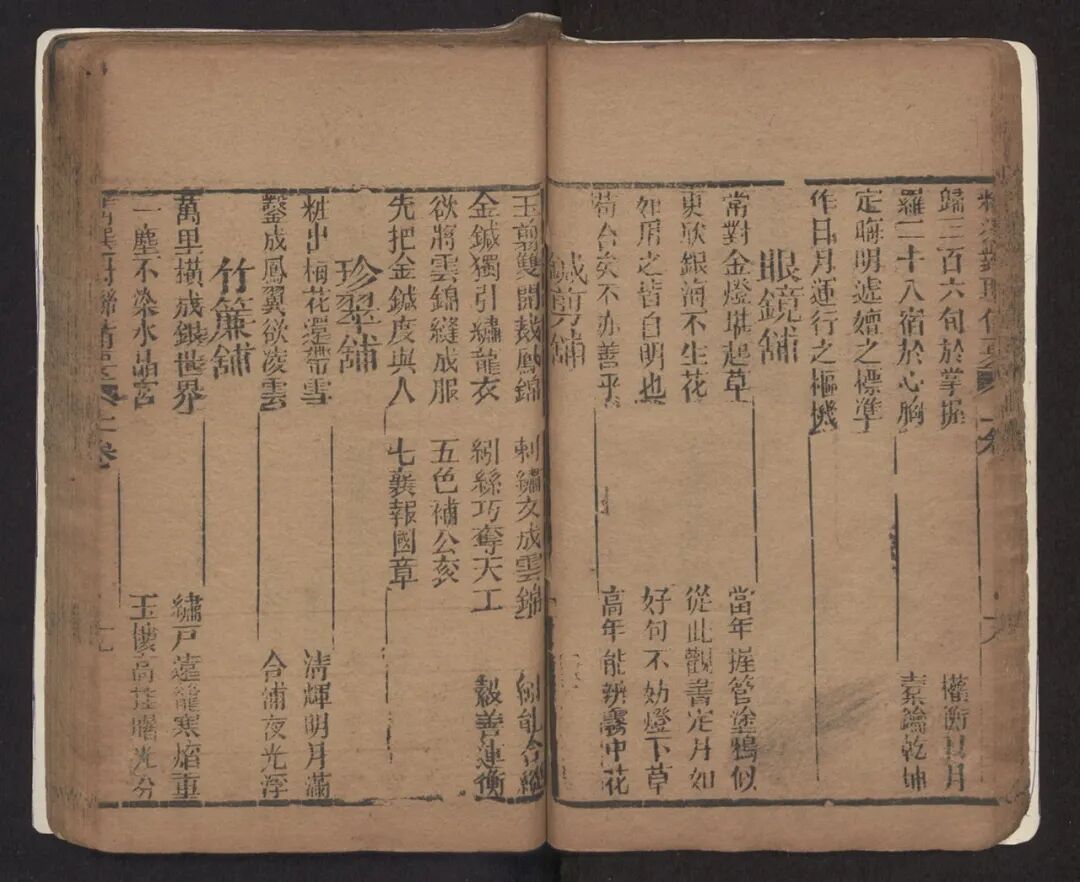 歸三百六旬於掌握
權衡日月
羅二十八宿於心胸
橐籥乾坤
定晦明遞嬗之標準
作日月運行之樞機
眼鏡舖
常對金燈堪起草
當年握管塗鴉似
更欣銀海不生花
從此觀書定月如
如用之皆自明也
好句不妨燈下草
苟合矣不亦善乎
高年能辨霧中花
鍼剪舖
玉剪雙開裁鳳錦
刺繡文成雲錦
金鍼獨引繡龍衣
紉絲巧奪天工
縠善連衡
欲將雲錦縫成服
五色補公袞
先把金鍼度與人
七襄報國章
珍翠舖
粧出梅花還帶雪
清輝明月滿
鏨成鳳翼欲凌雲
合浦夜光浮
竹簾舖
萬里橫成銀世界
繡戶遠籠寒焰重
一塵不染水晶宮
玉樓高並曙光分
上卷